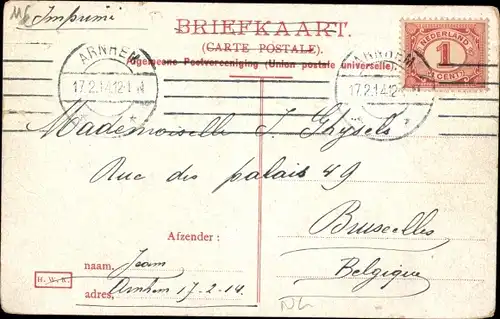 Imprimé
BRIEFKAART.
(CARTE POSTALE).
Algemeene Postvereeniging (Union postale universelle)
NEDERLAND
1
CENT
ARNHEM
17.2.14.12-1 N
ARNHEM
17.2.14.12-1 N
Mademoiselle J. Ghysels
Rue des palais 49
Bruxelles
Belgique
Afzender :
naam, Jean
adres, Arnhem 17-2-14.
H. W. A.